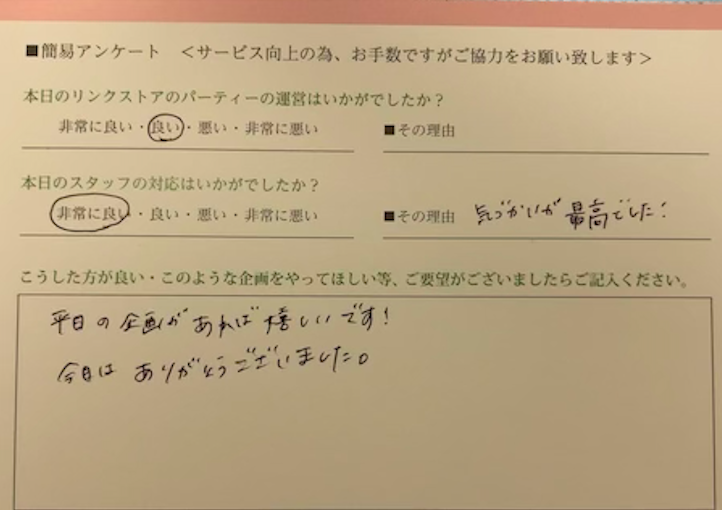 ■簡易アンケート ＜サービス向上の為、お手数ですがご協力をお願い致します＞
本日のリンクストアのパーティーの運営はいかがでしたか？
非常に良い・良い・悪い・非常に悪い ■その理由
本日のスタッフの対応はいかがでしたか？
非常に良い・良い・悪い・非常に悪い ■その理由 気づかいが最高でした！
こうした方が良い・このような企画をやってほしい等、ご要望がございましたらご記入ください。
平日の企画があれば嬉しいです！
今日はありがとうございました。